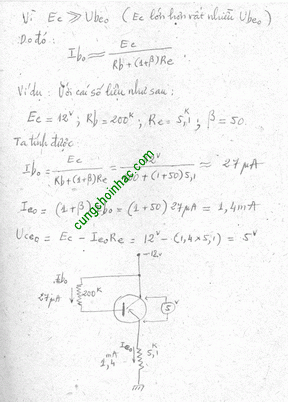 Vì Ec ≫ Ubeo (Ec lớn hơn rất nhiều Ubeo)
Do đó:
Ibo ≈ Ec / Rb + (1+β)Re
Ví dụ: Với các số liệu như sau:
Ec = 12V; Rb = 200K; Re = 5,1K; β = 50.
Ta tính được
Ibo = Ec / Rb + (1+β)Re = V / + (1+50)5,1 ≈ 27 μA
Ieo = (1+β) Ibo = (1+50) 27μA = 1,4mA
Uceo = Ec - IeoRe = 12V - (1,4 × 5,1) = 5V
cungchoinhac.com
-12V
Ibo
27μA
200K
5V
Ieo
1,4mA
5,1K